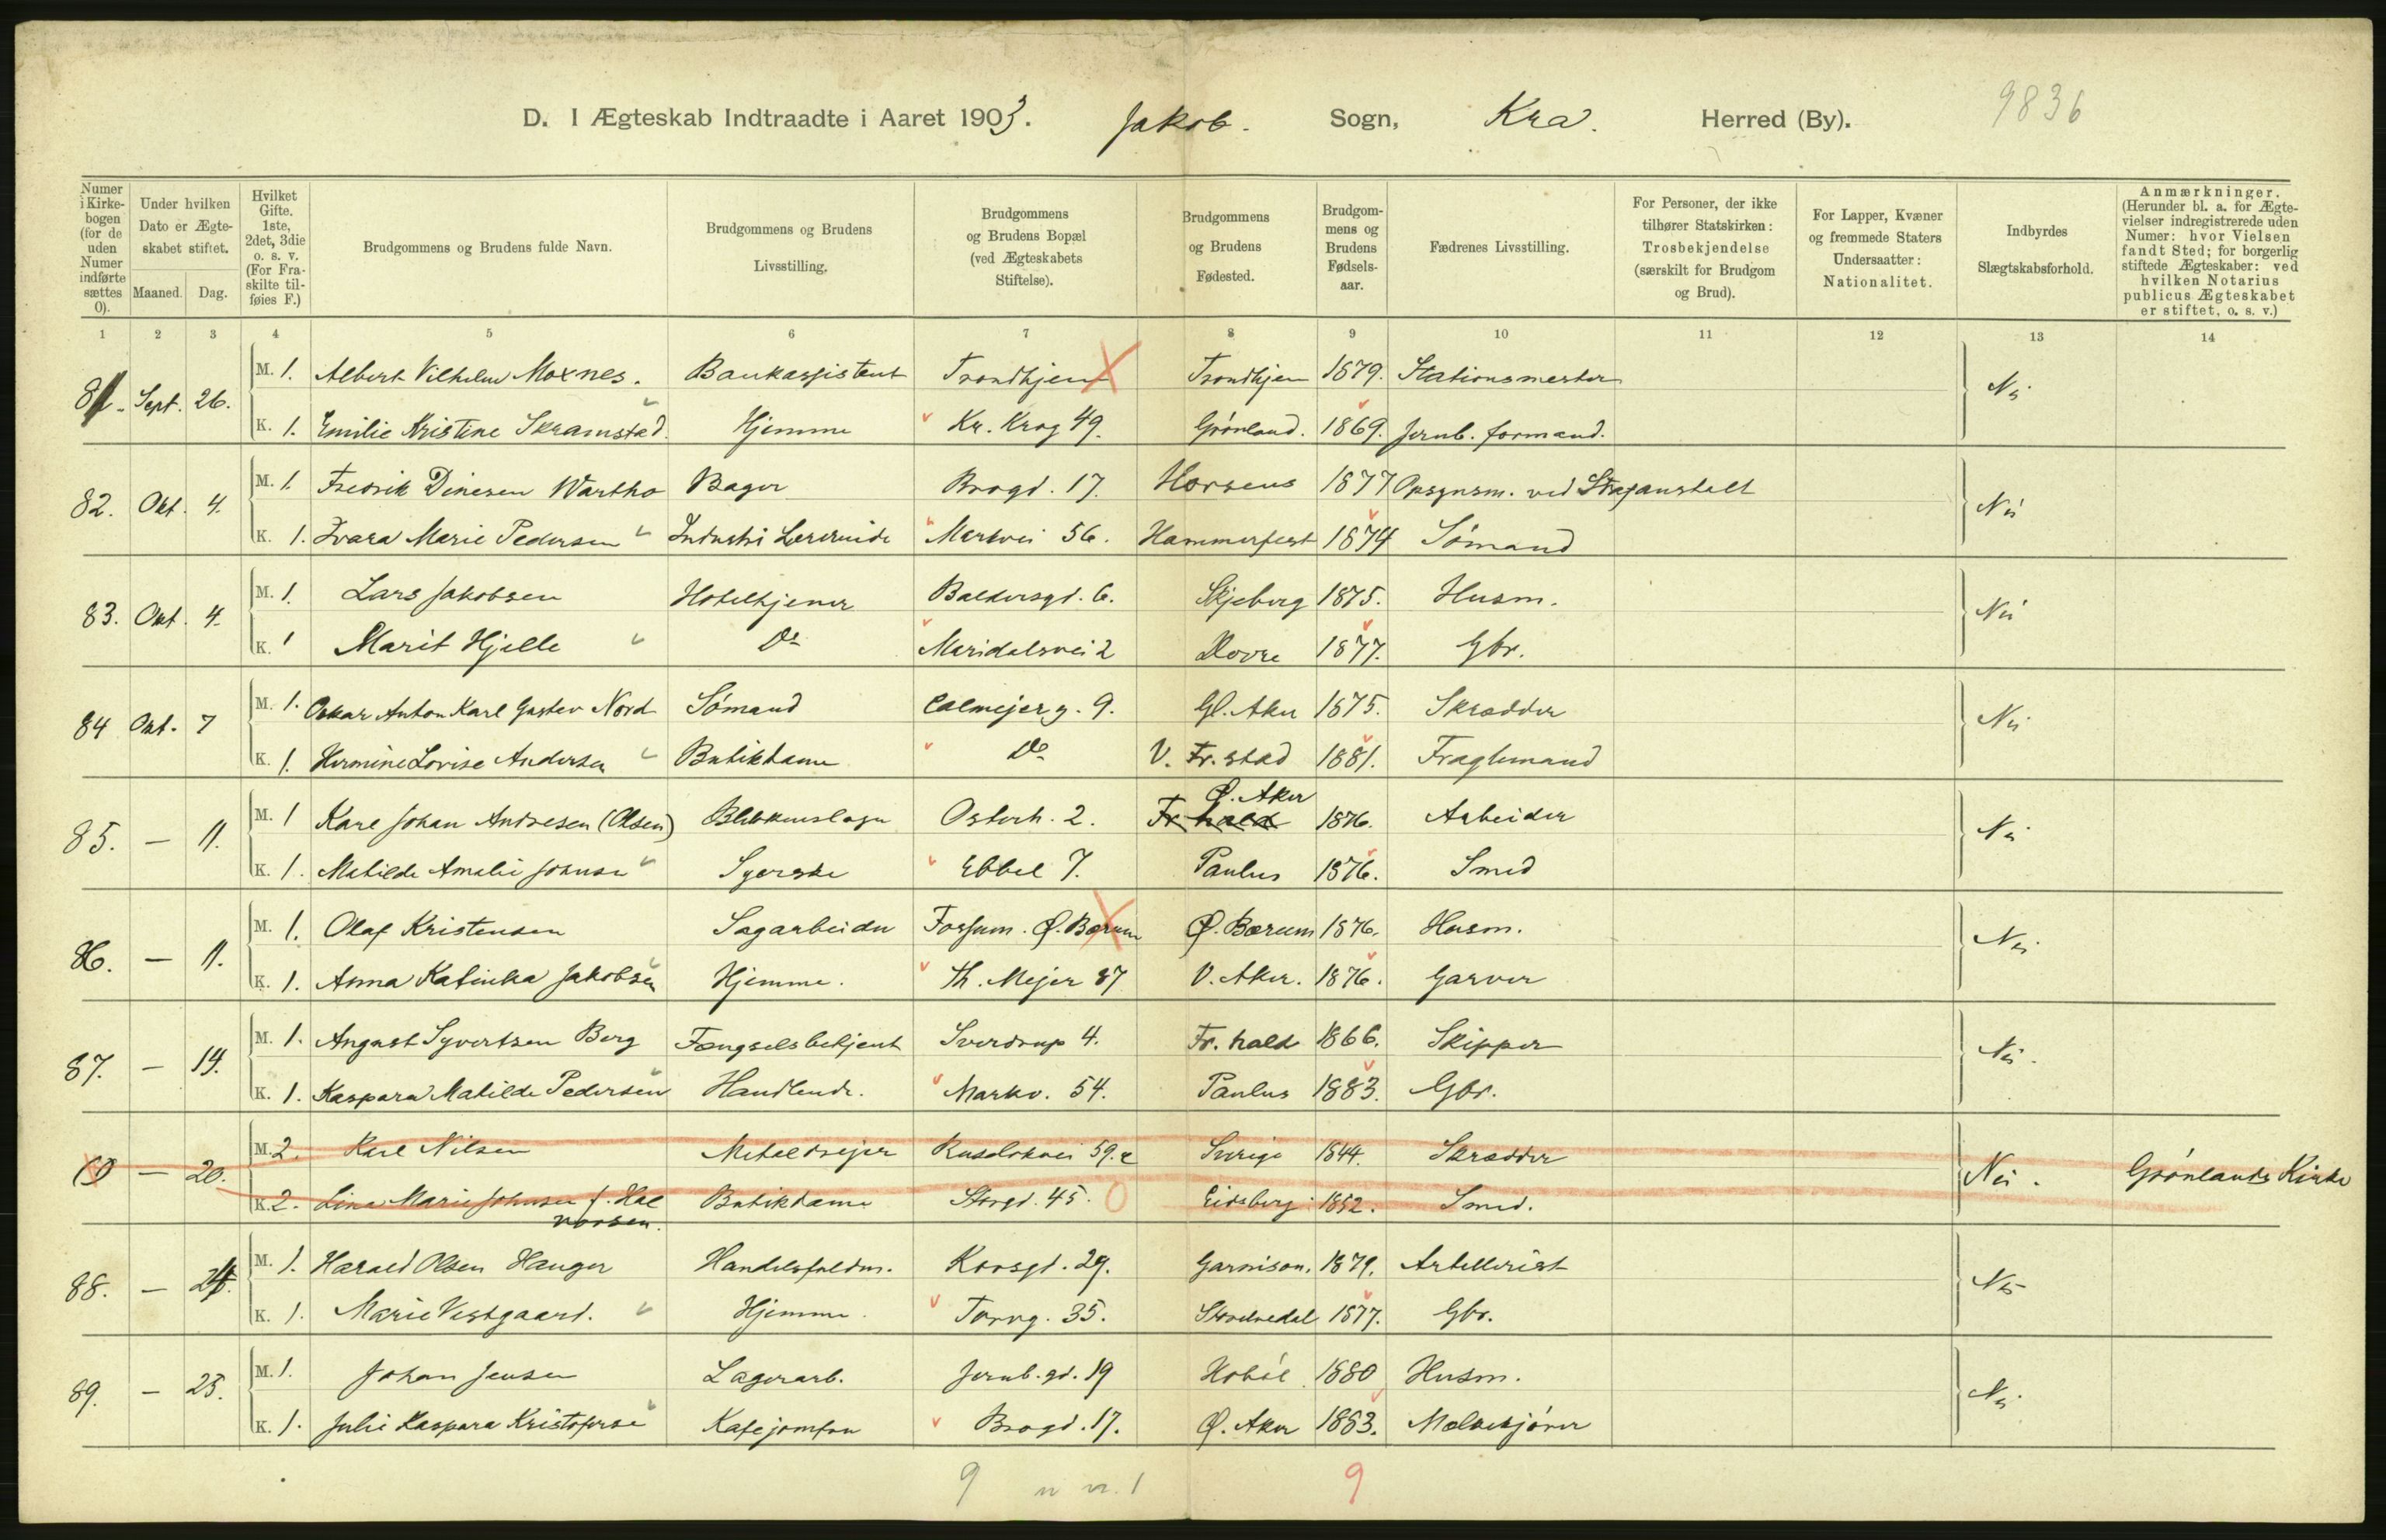 D. I Ægteskab Indtraadte i Aaret 1903. Jakob. Sogn, Kra. Herred (By). 9836
Numer i Kirkebogen (for de uden Numer indførte sættes 0).
Under hvilken Dato er Ægteskabet stiftet.
Maaned. Dag.
Hvilket Gifte. 1ste, 2det, 3die o. s. v. (For Fraskilte tilføies F.)
Brudgommens og Brudens fulde Navn.
Brudgommens og Brudens Livsstilling.
Brudgommens og Brudens Bopæl (ved Ægteskabets Stiftelse).
Brudgommens og Brudens Fødested.
Brudgommens og Brudens Fødselsaar.
Fædrenes Livsstilling.
For Personer, der ikke tilhører Statskirken: Trosbekjendelse (særskilt for Brudgom og Brud).
For Lapper, Kvæner og fremmede Staters Undersaatter: Nationalitet.
Indbyrdes Slægtskabsforhold.
Anmærkninger. (Herunder bl. a. for Ægtevielser indregistrerede uden Numer: hvor Vielsen fandt Sted; for borgerlig stiftede Ægteskaber: ved hvilken Notarius publicus Ægteskabet er stiftet, o. s. v.)
1 2 3 4 5 6 7 8 9 10 11 12 13 14
81. Sept. 26. M. 1. Albert Vilhelm Moxnes. Bankassistent Trondhjem Trondhjem 1879. Stationsmester Nei
K. 1. Emilie Kristine Skramstad. Hjemme Kr. Krog 49. Grönland. 1869. Jernb. formand.
82. Okt. 4. M. 1. Fredrik Dinesen Wartho Bager Brogd. 17. Horsens 1877 Opsynsm. ved Strafanstalt Nei
K. 1. Ivara Marie Pedersen Industri Lærerinde Markvei 56. Hammerfest 1874 Sömand
83. Okt. 4. M. 1. Lars Jakobsen Hotelkjener Baldersgd. 6. Skjeberg 1875. Husm. Nei
K. 1 Marit Hjelle Do Maridalsvei 2 Dovre 1877. Gbr.
84 Okt. 7 M. 1. Oskar Anton Karl Gustav Nord Sömand Calmejer g. 9. Gl. Aker 1875. Skrædder Nei
K. 1. Hermine Lovise Andersen Butikdame Do V. Fr.stad 1881. Fragtemand
85. — 11. M. 1 Karl Johan Andresen (Olsen) Blikkenslager Osterh. 2. Fr.hald Ø. Aker 1876. Arbeider Nei
K. 1. Matilde Amalie Johnsen Syerske Ebbel 7. Paulus 1876. Smed
86. — 11. M. 1. Olaf Kristensen Sagarbeider Fossum. Ø. Bærum Ø. Bærum 1876. Husm. Nei
K. 1. Anna Katinka Jakobsen Hjemme. Th. Mejer 87 V. Aker. 1876. Garver
87. — 14. M. 1. August Syvertsen Berg Fængselsbetjent Sverdrup 4. Fr. hald 1866. Skipper Nei.
K. 1. Kaspara Matilde Pedersen Handlende. Markv. 54. Paulus 1883. Gbr.
0 — 20. M. 2. Karl Nilsen Metaldrejer Ruselökvei 59. Sverige 1844. Skrædder Nei. Grönlands Kirke
K. 2. Lina Marie Johnsen f. Halvorsen. Butikdame Storgd. 45. Eidsberg 1852. Smed.
88. — 24. M. 1. Harald Olsen Hauger Handelsfuldm. Korsgd. 29. Garnison. 1879. Artellerist Nei
K. 1. Marie Vestgaard. Hjemme Torvg. 35. Storelvedal 1877. Gbr.
89. — 25. M. 1. Johan Jensen Lagerarb. Jernb. gd. 19 Hoböl 1880 Husm. Nei.
K. 1. Julie Kaspara Kristoferse Kafejomfru Brogd. 17. Ø. Aker 1883. Melkekjörer
9 9